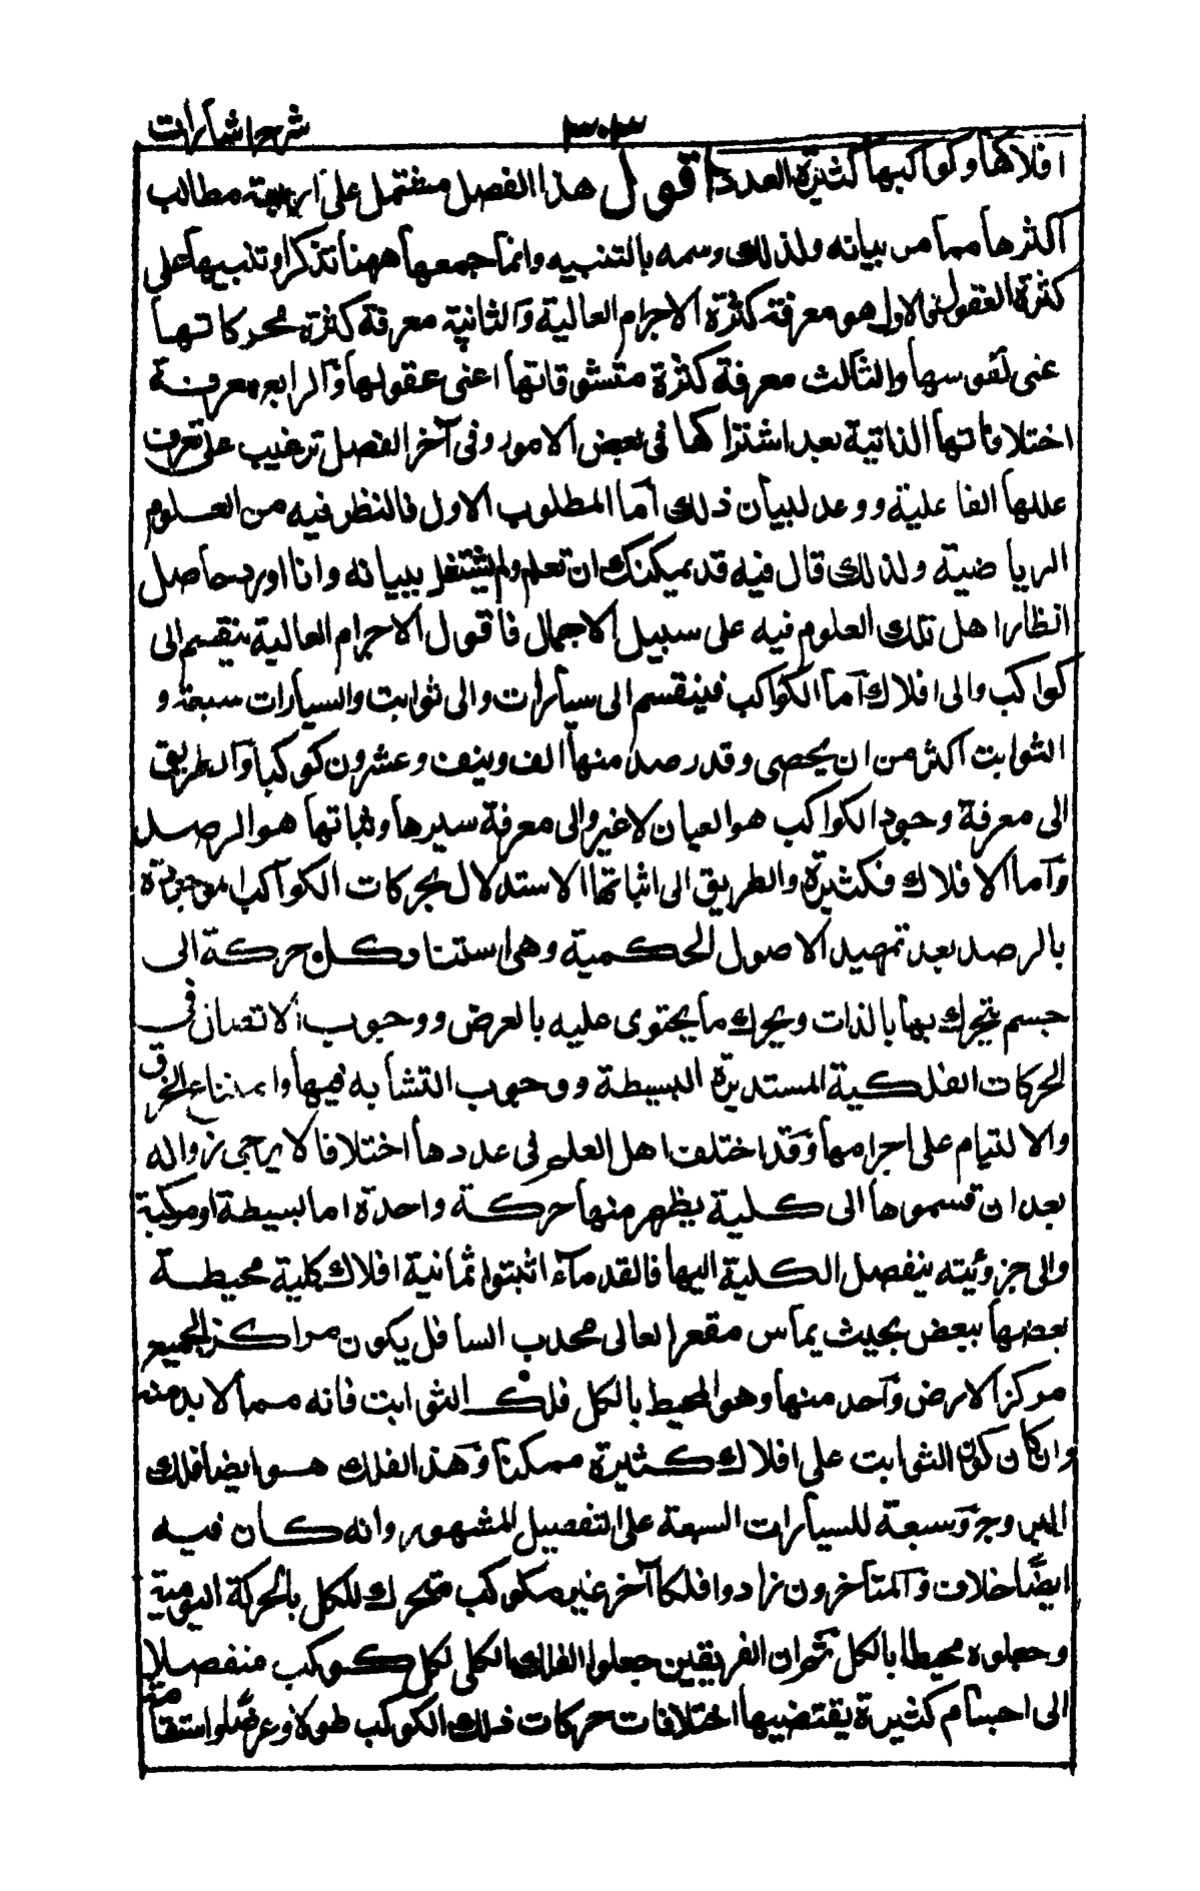 شرح اشارات
٣٠٣
افلاكها وكواكبها كثيرة العدد اقول هذا الفصل مشتمل على اربعة مطالب
اكثرها مما مر بيانه ولذلك وسمه بالتنبيه وانما جمعها ههنا تذكرا وتنبيها على
كثرة العقول فالاول هو معرفة كثرة الاجرام العالية والثانية معرفة كثرة محركاتها
عنى نفوسها والثالث معرفة كثرة متشوقاتها اعنى عقولها والرابع معرفة
اختلافاتها الذاتية بعد اشتراكها فى بعض الامور وفى آخر الفصل ترغيب على تعرف
عللها الفاعلية ووعد لبيان ذلك اما المطلوب الاول فالنظر فيه من العلوم
الرياضية ولذلك قال فيه قد يمكنك ان تعلم ولم يشتغل ببيانه وانا اورد حاصل
انظار اهل تلك العلوم فيه على سبيل الاجمال فاقول الاجرام العالية ينقسم الى
كواكب والى افلاك اما الكواكب فينقسم الى سيارات والى ثوابت والسيارات سبعة و
الثوابت اكثر من ان يحصى وقد رصد منها الف ونيف وعشرون كوكبا والطريق
الى معرفة وجود الكواكب هو العيان لا غير والى معرفة سيرها وثباتها هو الرصد
واما الافلاك فكثيرة والطريق الى اثباتها الاستدلال بحركات الكواكب الموجودة
بالرصد بعد تمهيد الاصول الحكمية وهى استناد كل حركة الى
جسم يتحرك بها بالذات ويحرك ما يحتوى عليه بالعرض ووجوب الاتصال فى
الحركات الفلكية المستديرة البسيطة ووجوب التشابه فيها وامتناع الخرق
والالتيام على اجرامها وقد اختلف اهل العلم فى عددها اختلافا لا يرجى زواله
بعد ان قسموها الى كلية يظهر منها حركة واحدة اما بسيطة او مركبة
والى جزوئيته ينفصل الكلية اليها فالقدماء اثبتوا ثمانية افلاك كلية محيطة
بعضها ببعض بحيث يماس مقعر العالى محدب السافل يكون مراكز الجميع
مركز الارض واحد منها وهو المحيط بالكل فلك الثوابت فانه مما لا بد منه
وان كان كون الثوابت على افلاك كثيرة ممكنا وهذا الفلك هو ايضا فلك
البروج وسبعة للسيارات السبعة على التفصيل المشهور وانه كان فيه
ايضا خلاف والمتاخرون زادوا فلكا آخر غير مكوكب متحرك للكل بالحركة اليومية
وجعلوه محيطا بالكل ثم ان الفريقين جعلوا الفلك الكلى لكل كوكب منفصلا
الى اجسام كثيرة يقتضيها اختلافات حركات ذلك الكوكب طولا وعرضا واستقامة